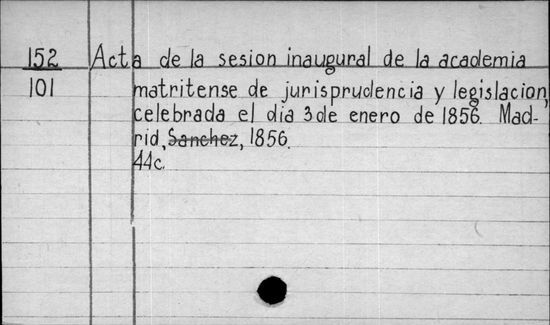 152 Acta de la sesion inaugural de la academia
101 matritense de jurisprudencia y legislacion,
celebrada el dia 3 de enero de 1856. Mad-
rid, Sanchez, 1856.
44c.